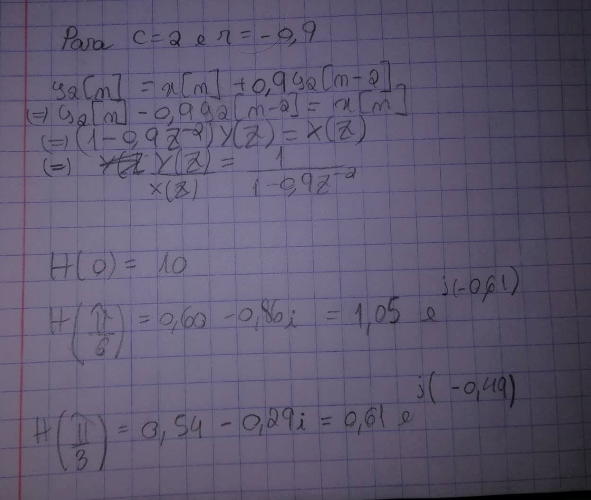 Para C=2 e r=-0,9
y2[n] = x[n] + 0,9y2[n-2]
(=) y2[n] - 0,9y2[n-2] = x[n]
(=) (1-0,9z^-2) Y(z) = X(z)
(=) Y(z)/X(z) = 1/(1-0,9z^-2)
H(0) = 10
H(π/6) = 0,60 - 0,86i = 1,05 e^j(-0,61)
H(π/3) = 0,54 - 0,29i = 0,61 e^j(-0,49)